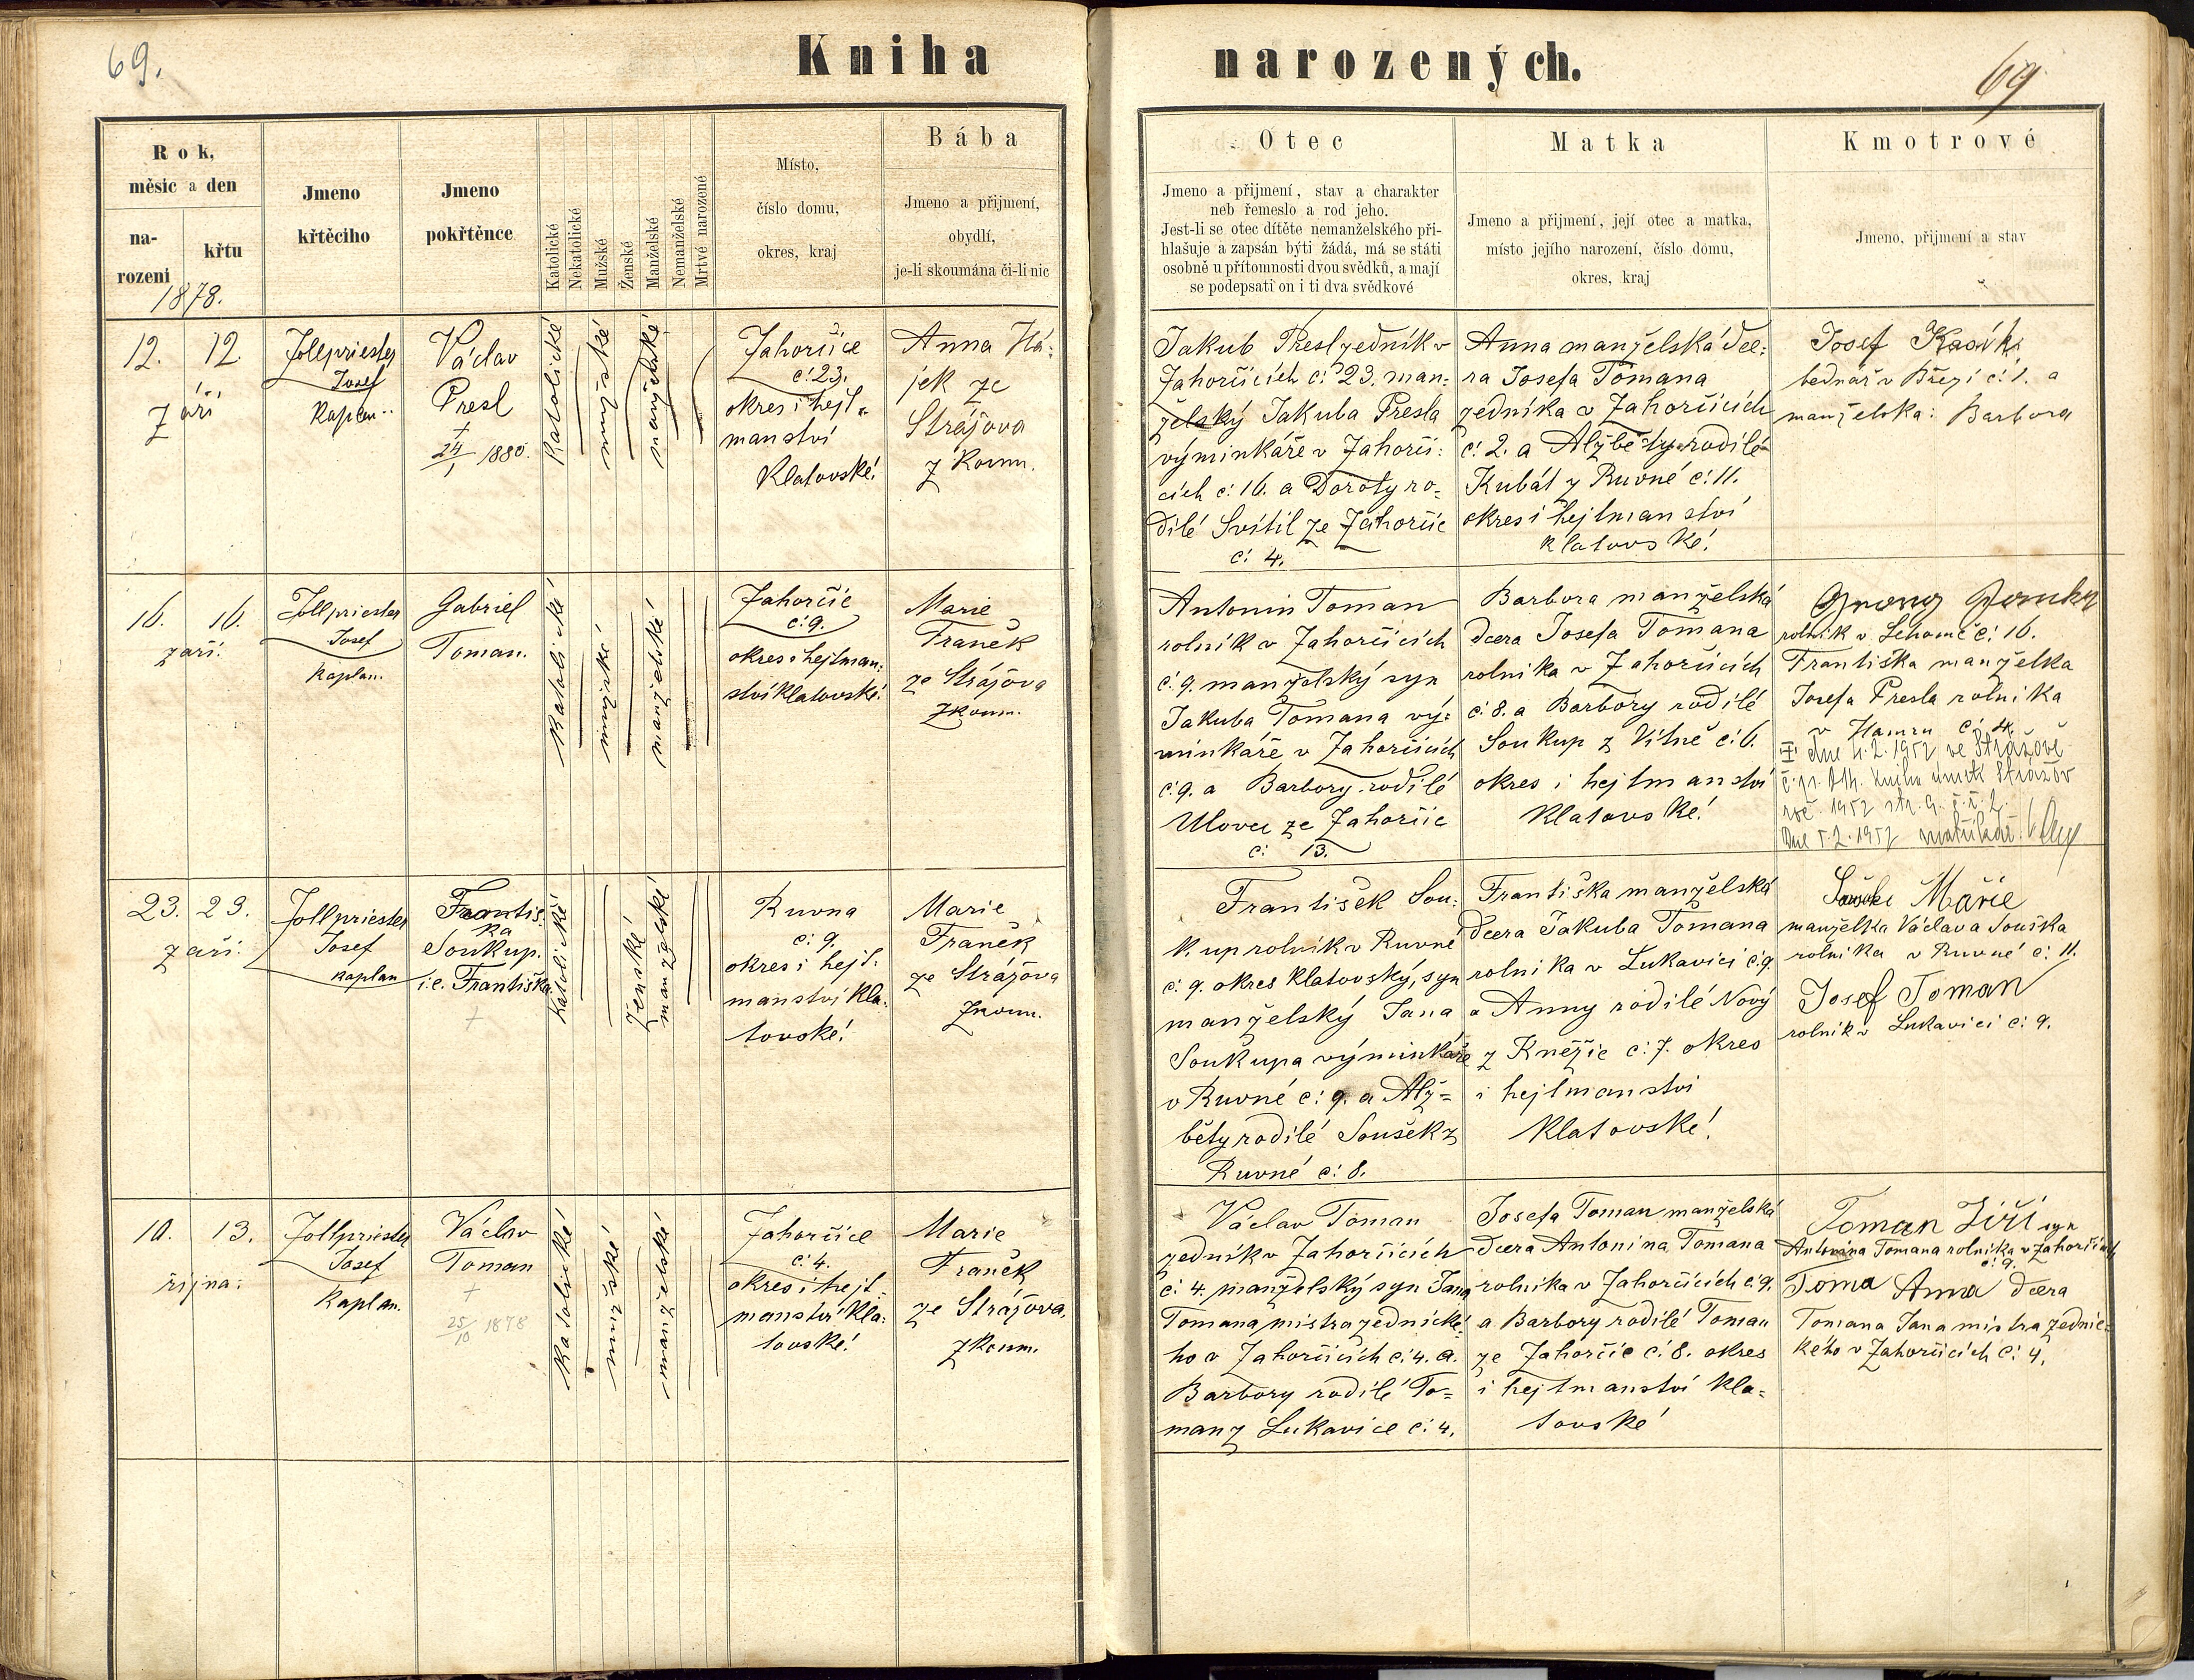 69.
Kniha narozených.
69
Rok,
měsíc a den
na-
rození
křtu
1878.
Jmeno
křtěcího
Jmeno
pokřtěnce
Katolické
Nekatolické
Mužské
Ženské
Manželské
Nemanželské
Mrtvé narozené
Místo,
číslo domu,
okres, kraj
Bába
Jmeno a přijmení,
obydlí,
je-li skoumána či-li nic
Otec
Jmeno a přijmení, stav a charakter
neb řemeslo a rod jeho.
Jest-li se otec dítěte nemanželského při-
hlašuje a zapsán býti žádá, má se státi
osobně u přítomnosti dvou svědků, a mají
se podepsati on i ti dva svědkové
Matka
Jmeno a přijmení, její otec a matka,
místo jejího narození, číslo domu,
okres, kraj
Kmotrové
Jmeno, přijmení a stav
12. 12.
září
Zollpriester
Josef
Kaplan
Václav
Presl
+
24/1 1880.
Katolické
mužské
manželské
Zahorčice
č: 23.
okres i hejt=
manství
Klatovské!
Anna Há:
jek ze
Strážova
z Koum.
Jakub Presl zedník v
Zahorčicích č: 23. man:
želský Jakuba Presla
výminkáře v Zahorči:
cích č: 16. a Doroty ro=
dilé Svítil ze Zahorčic
č: 4.
Anna manželská dce:
ra Josefa Tomana
zedníka v Zahorčicích
č: 2. a Alžběty rodilé
Kubát z Ruvné č: 11.
okres i hejtmanství
klatovské!
Josef
bednář v Březí č: 1. a
manželka: Barbora
16. 16.
září.
Zollpriester
Josef
Kaplan.
Gabriel
Toman.
Katolické
mužské
manželské
Zahorčic
č: 9.
okres i hejtman:
ství klatovské!
Marie
Franěk
ze Strážova
zkoum.
Antonin Toman
rolník v Zahorčicích
č: 9. manželský syn
Jakuba Tomana vý=
minkáře v Zahorčicích
č: 9. a Barbory rodilé
ze Zahorčic
č: 13.
Barbora manželská
dcera Josefa Tomana
rolníka v Zahorčicích
č: 8. a Barbory rodilé
Soukup z Vítně č: 6.
okres i hejtmanství
Klatovské!
rolník v č: 16.
Františka manželka
Josefa Presla rolníka
v Hamru č: 4.
dne 4.2.1952 ve Strážově
kniha úmrtí Strážov
roč. 1952 str. 9. č. ř. 2.
Dne 5.2.1952 matrikář:
23. 23.
září.
Zollpriester
Josef
kaplan
Františ:
ka
Soukup.
i.e. Františka.
+
katolické
ženské
manželské
Ruvna
č: 9.
okres i hejt.
manství Kla:
tovské!
Marie
Franěk
ze Strážova
zkoum.
František Sou:
kup rolník v Ruvné
č: 9. okres klatovský, syn
manželský Jana
Soukupa výminkáře
v Ruvné č: 9. a Alž=
běty rodilé Soušek z
Ruvné č: 8.
Františka manželská
dcera Jakuba Tomana
rolníka v Lukavici č: 9.
a Anny rodilé Nový
z Kněžic č: 7. okres
i hejtmanství
Klatovské!
Marie
manželka Václava Souška
rolníka v Ruvné č: 11.
Josef Toman
rolník v Lukavici č: 9.
10. 13.
října:
Zollpriester
Josef
Kaplan.
Václav
Toman
+
25/10 1878
Katolické
mužské
manželské
Zahorčice
č: 4.
okres i hejt=
manství Kla:
tovské!
Marie
Franěk
ze Strážova.
zkoum.
Václav Toman
zedník v Zahorčicích
č: 4. manželský syn Jana
Tomana mistra zednické:
ho v Zahorčicích č: 4. a.
Barbory rodilé To=
man z Lukavice č: 4.
Josefa Toman manželská
dcera Antonína Tomana
rolníka v Zahorčicích č: 9.
a Barbory rodilé Toman
ze Zahorčic č: 8. okres
i hejtmanství Kla=
tovské!
Toman Jiří syn
Antonína Tomana rolníka v Zahorčicích
č: 9.
Toma Anna dcera
Tomana Jana mistra zednic=
kého v Zahorčicích č: 4.